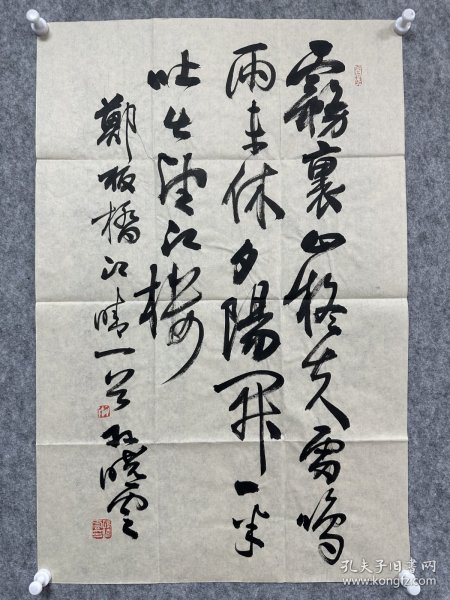 霧裹山疑失雷鳴
雨未休夕陽開一半
吐出望江楼
鄭板橋江晴一首 孫曉雲
孔夫子旧书网
www.kongfz.com